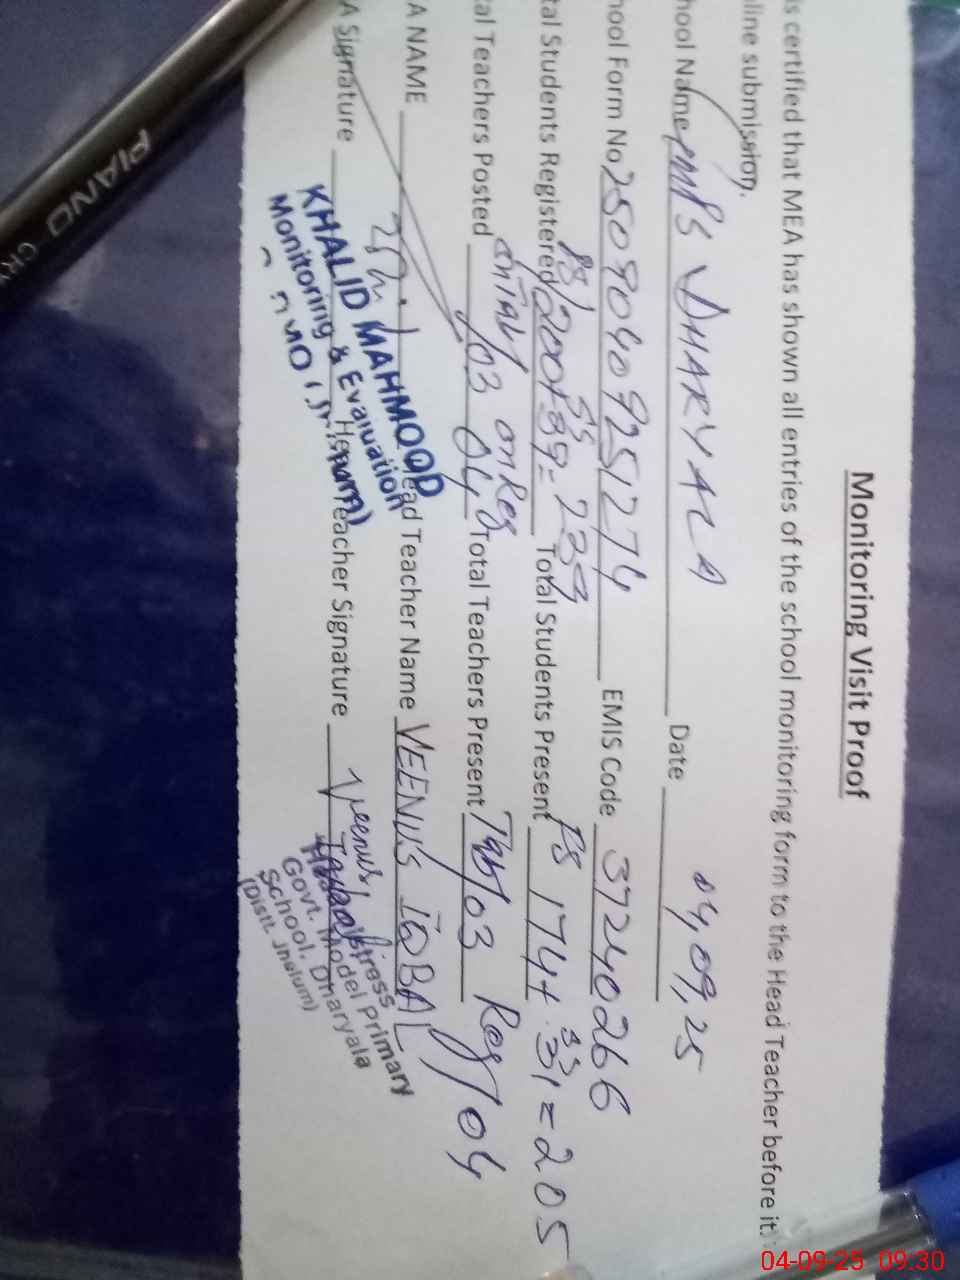 Monitoring Visit Proof
is certified that MEA has shown all entries of the school monitoring form to the Head Teacher before it
line submission.
hool Name GMPS DHARYALA Date 04,09,25
hool Form No 2509040925274 EMIS Code 37240266
tal Students Registered PS/200+ SS 39=239 Total Students Present PS 174+ SS 31=205
tal Teachers Posted on Tab/03 on Reg 04 Total Teachers Present Tab/03 Reg/04
A NAME Head Teacher Name VEENUS IQBAL
A Signature Head Teacher Signature Veenus Iqbal
KHALID MAHMOOD
Monitoring & Evaluation
Headmistress
Govt. Model Primary
School, Dharyala
(Distt. Jhelum)
PIANO
04-09-25 09:30